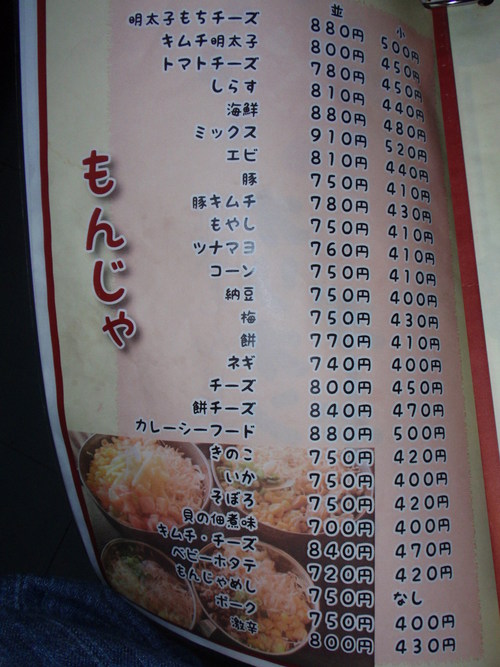 もんじゃ
並 小
明太子もちチーズ 880円 500円
キムチ明太子 800円 450円
トマトチーズ 780円 450円
しらす 810円 440円
海鮮 880円 480円
ミックス 910円 520円
エビ 810円 440円
豚 750円 410円
豚キムチ 780円 430円
もやし 750円 410円
ツナマヨ 760円 410円
コーン 750円 410円
納豆 750円 400円
梅 750円 430円
餅 770円 410円
ネギ 740円 400円
チーズ 800円 450円
餅チーズ 840円 470円
カレーシーフード 880円 500円
きのこ 750円 420円
いか 750円 400円
そぼろ 750円 420円
貝の佃煮味 700円 400円
キムチ・チーズ 840円 470円
ベビーホタテ 720円 420円
もんじゃめし 750円 なし
ポーク 750円 400円
激辛 800円 430円